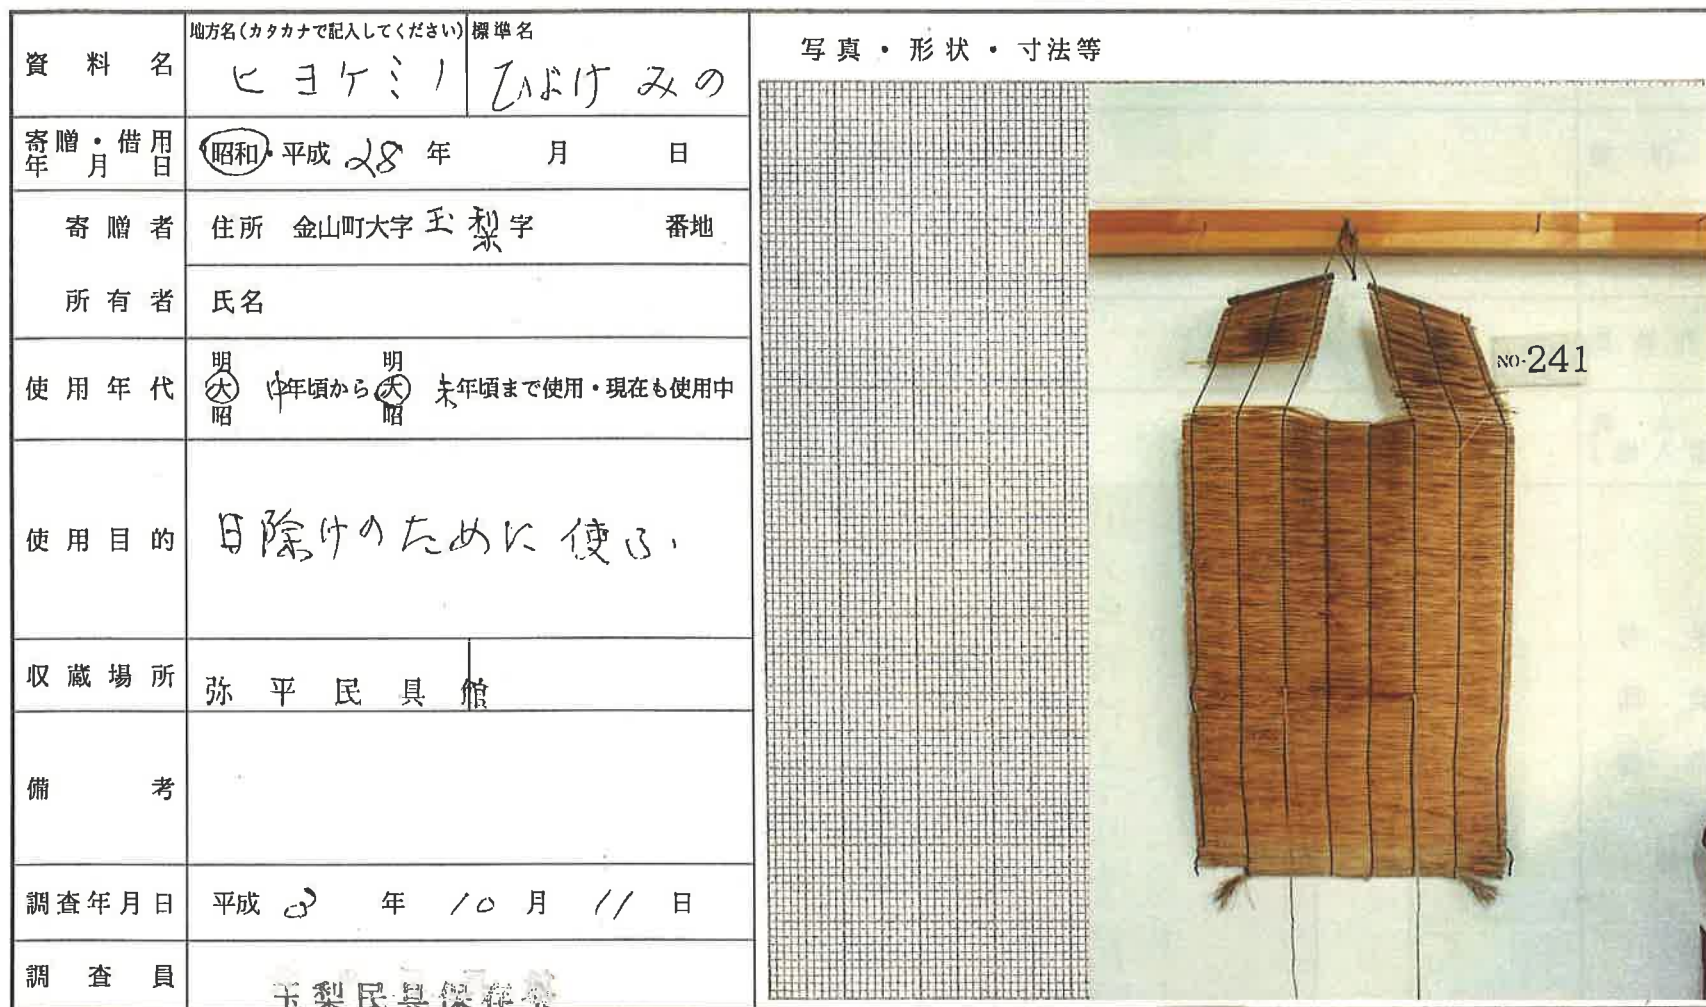 資料名
地方名(カタカナで記入してください) 標準名
ヒヨケミノ ひよけみの
寄贈・借用年月日
昭和・平成 28 年 月 日
寄贈者
住所 金山町大字 玉梨 字 番地
所有者
氏名
使用年代
明大昭 中年頃から 明大昭 末年頃まで使用・現在も使用中
使用目的
日除けのために使ふ
収蔵場所
弥平民具館
備考
調査年月日
平成 3 年 10 月 11 日
調査員
玉梨民具保存会
写真・形状・寸法等
NO.241